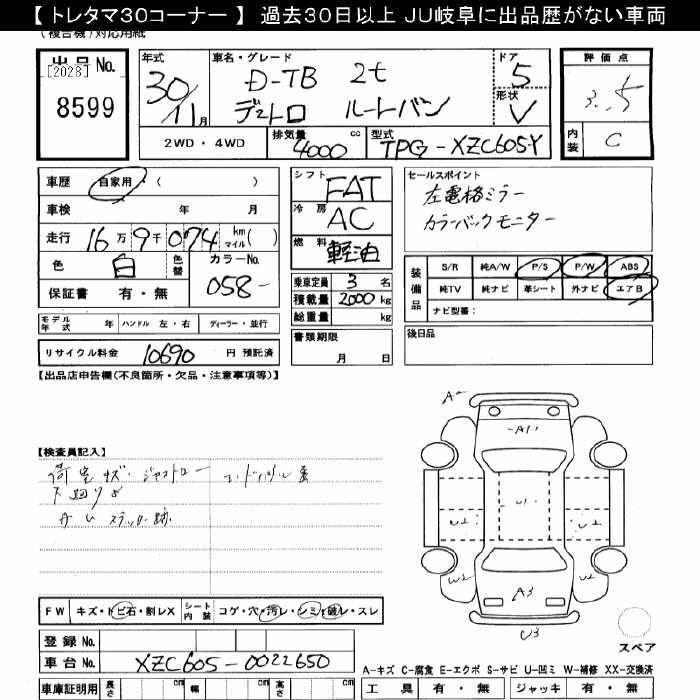 【 トレタマ30コーナー 】 過去30日以上 JU岐阜に出品歴がない車両
(複合機)対応用紙
出品 No.
[2028]
8599
年式
30/11月
車名・グレード
D-TB 2t
デュトロ ルートバン
ドア
5
形状
V
評価点
3.5
内装
C
2WD・4WD
排気量
4000 cc
型式
TPG-XZC605Y
車歴 自家用・( )
車検 年 月
走行 16万9千074 km マイル( )
色 白 色替 カラーNo. 058-
保証書 有・無
シフト FAT
冷房 AC
燃料 軽油
乗車定員 3 名
積載量 2000 kg
総重量 kg
セールスポイント
左電格ミラー
カラーバックモニター
装備品
S/R 純A/W P/S P/W ABS
純TV 純ナビ 革シート 外ナビ エアB
ナビ型番:
モデル年式 年 ハンドル 左・右 ディーラー・並行
リサイクル料金 10690 円 預託済
書類期限
月 日
後日品
【出品店申告欄(不良箇所・欠品・注意事項等)】
【検査員記入】
荷室キズ・
下廻りサ
A2
A1
U1
U2
U2
W2
U2
A3
U3
FW キズ・トビ石・割レX シート内装 コゲ・穴・汚レ・シミ・破レ・スレ
スペア
登録 No.
車台 No. XZC605-0022650
A-キズ C-腐食 E-エクボ S-サビ U-凹ミ W-補修 XX-交換済
車庫証明用 長さ cm 幅 cm 高さ cm
工具 有・無 ジャッキ 有・無